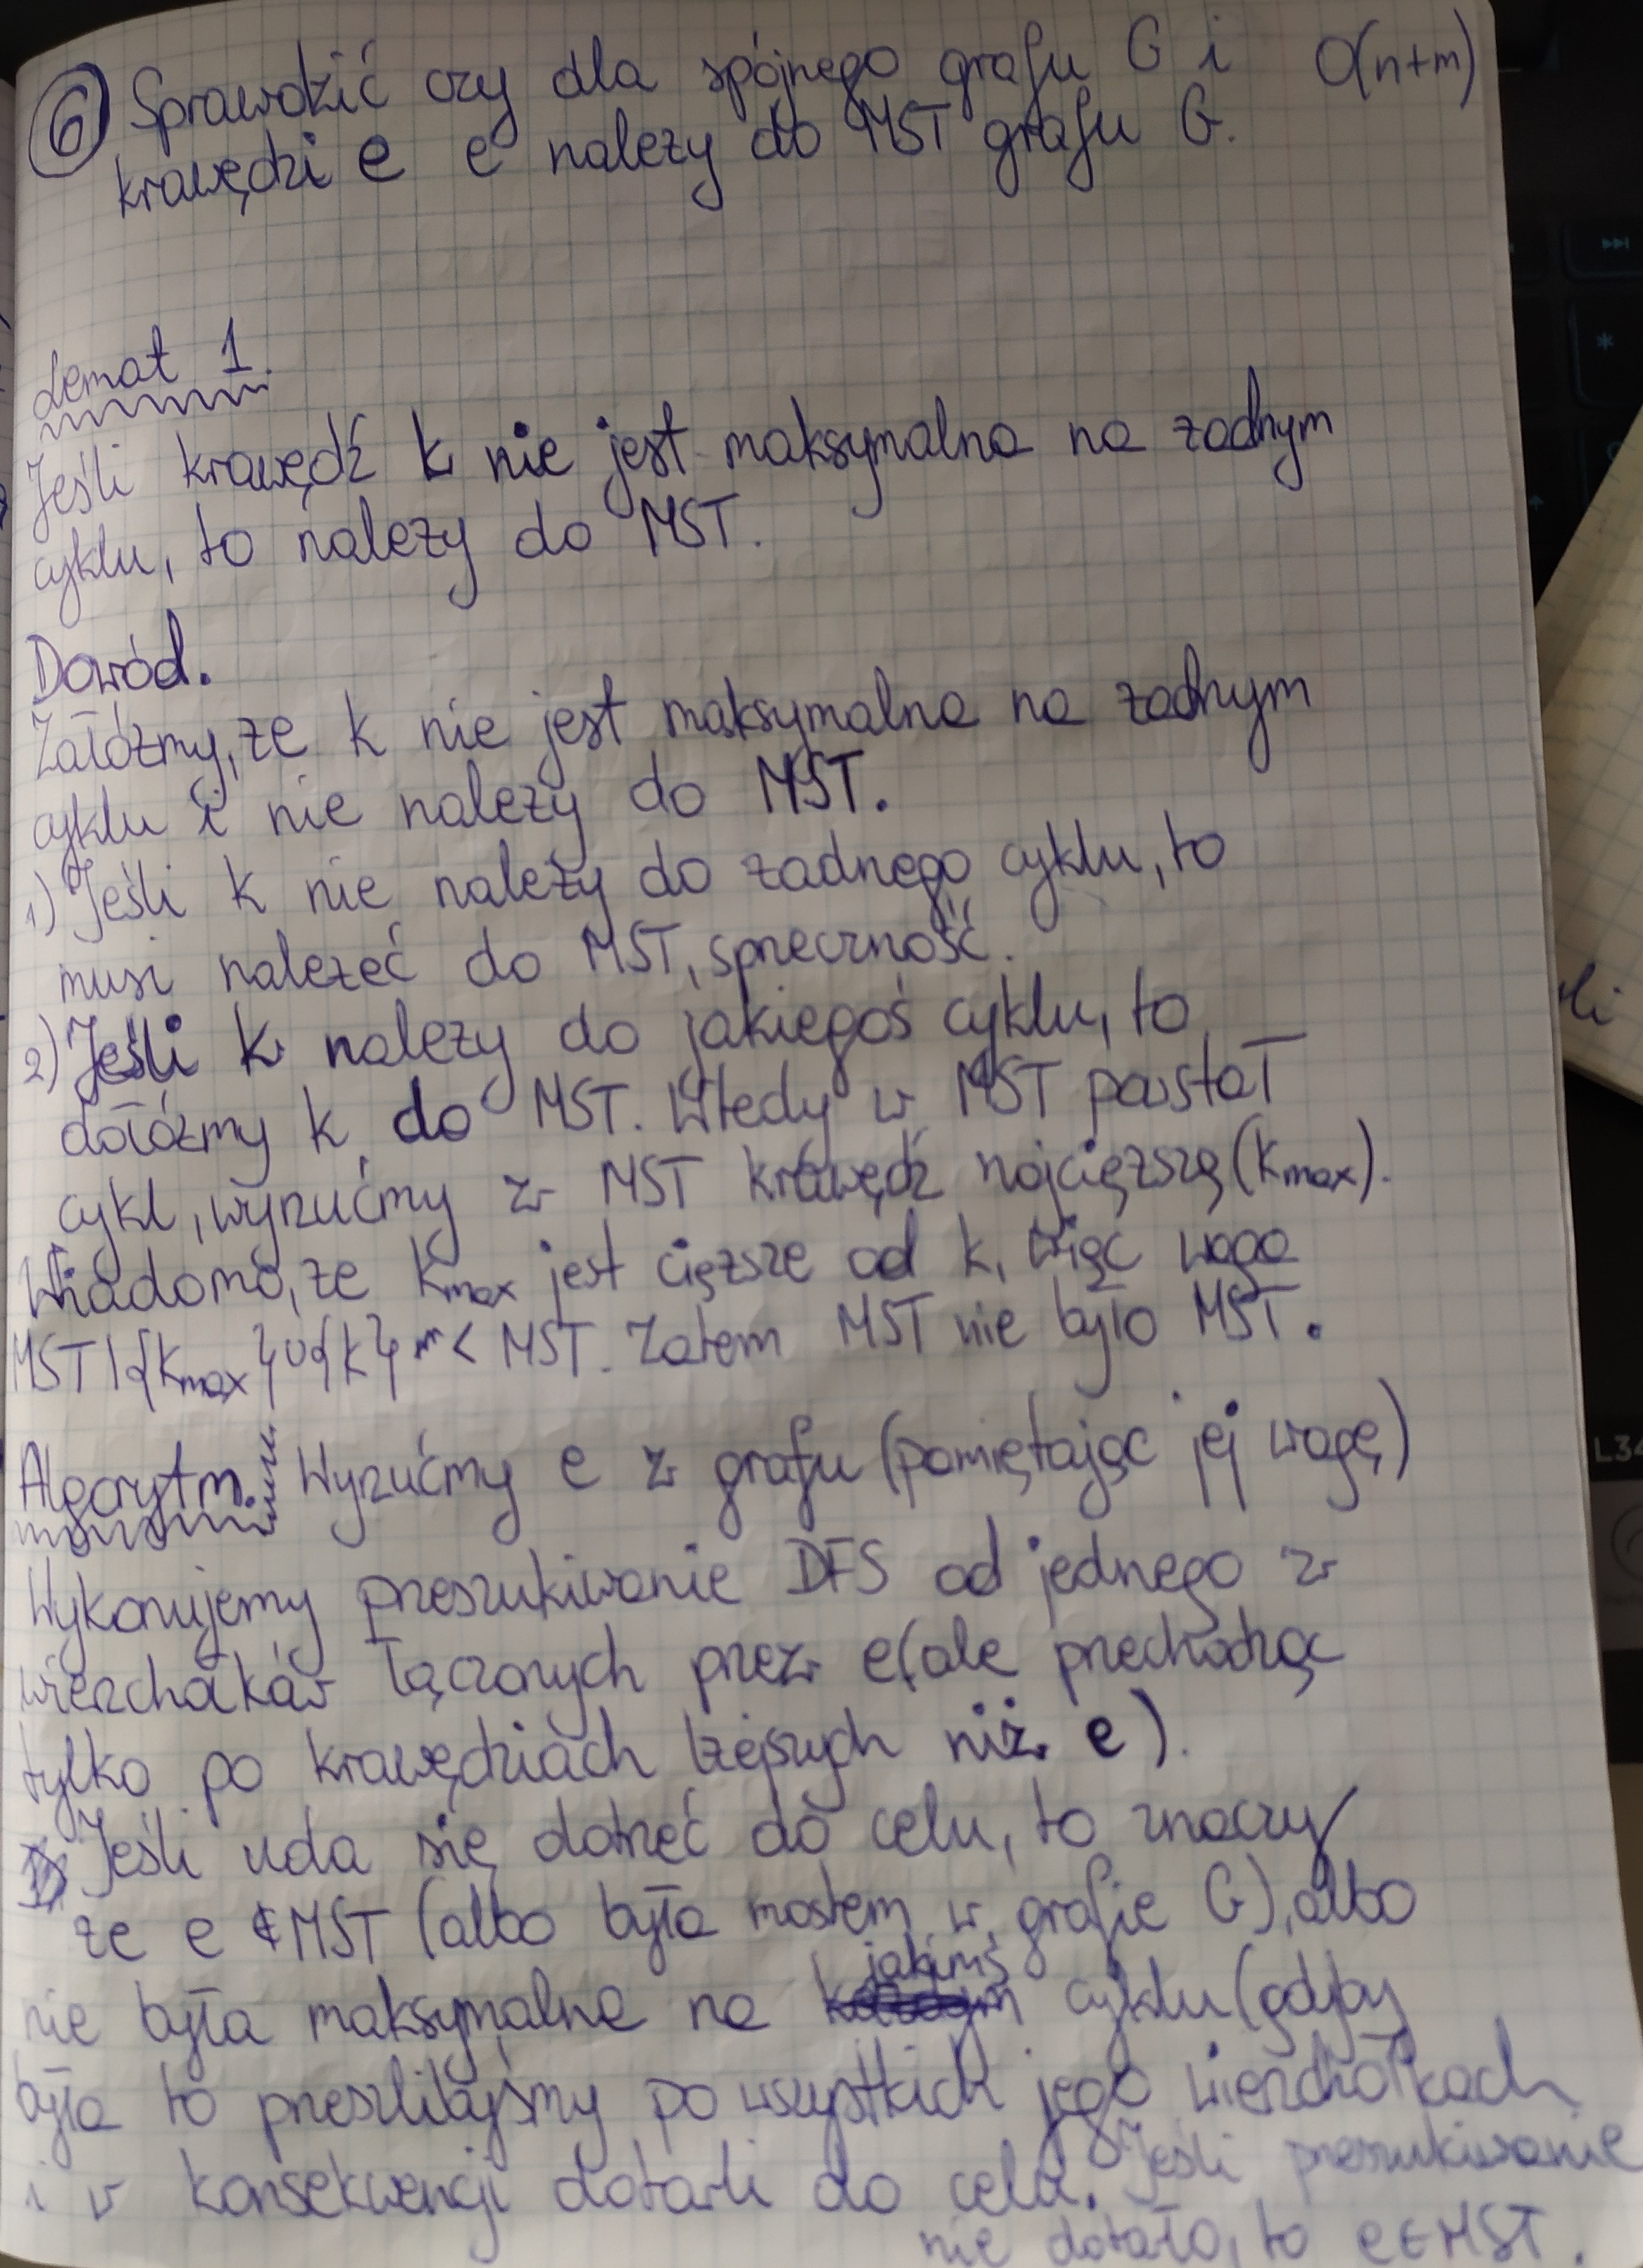 6 Sprawdzić czy dla spójnego grafu G i O(n+m)
krawędzi e e należy do MST grafu G.
Lemat 1.
Jeśli krawędź k nie jest maksymalna na żadnym
cyklu, to należy do MST.
Dowód.
Załóżmy, że k nie jest maksymalna na żadnym
cyklu i nie należy do MST.
1) Jeśli k nie należy do żadnego cyklu, to
musi należeć do MST, sprzeczność.
2) Jeśli k należy do jakiegoś cyklu, to
dołóżmy k do MST. Wtedy w MST powstał
cykl, wyrzućmy z MST krawędź najcięższą (kmax).
Wiadomo, że kmax jest cięższe od k, więc waga
MST\{kmax}∪{k} < MST. Zatem MST nie było MST.
Algorytm. Wyrzućmy e z grafu (pamiętając jej wagę)
Wykonujemy przeszukiwanie DFS od jednego z
wierzchołków łączonych przez e (ale przechodząc
tylko po krawędziach lżejszych niż e).
Jeśli uda się dotrzeć do celu, to znaczy
że e ∉ MST (albo była mostem w grafie G), albo
nie była maksymalna na jakimś cyklu (gdyby
była to przeszlibyśmy po wszystkich jego wierzchołkach
i w konsekwencji dotarli do celu. Jeśli przeszukiwanie
nie dotarło, to e ∈ MST.